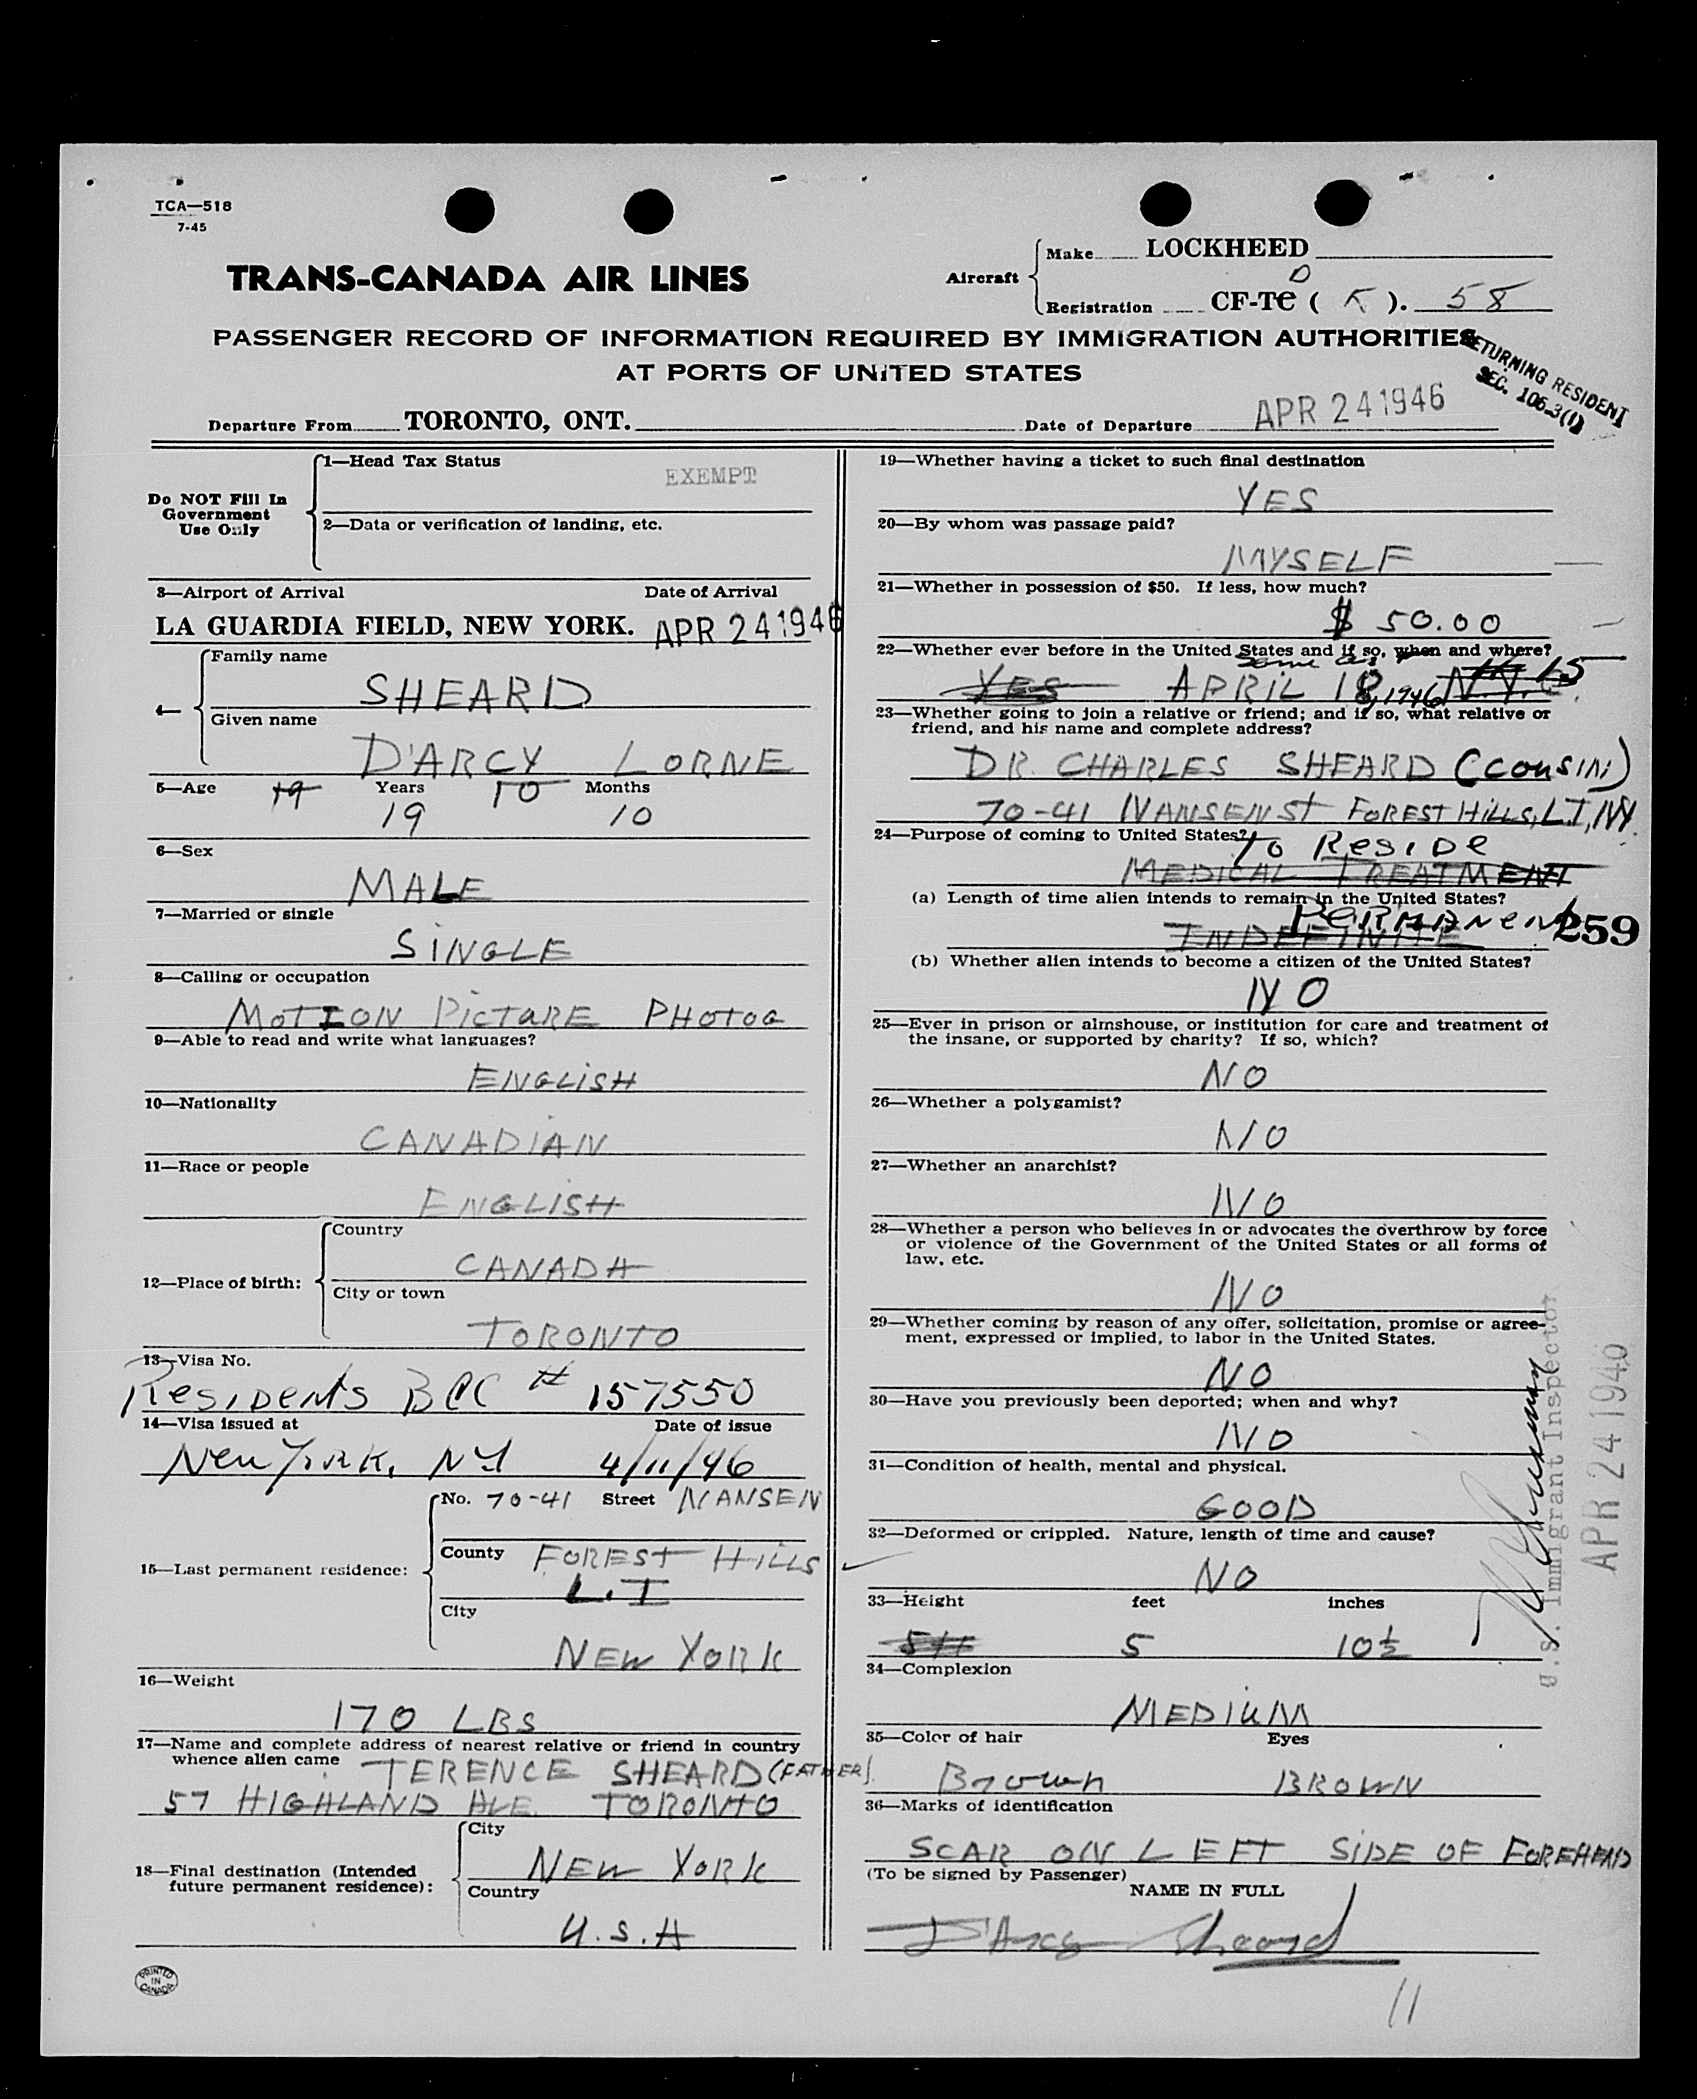 TCA—518
7-45
TRANS-CANADA AIR LINES
Aircraft
Make LOCKHEED
D
Registration CF-TC ( K ). 58
PASSENGER RECORD OF INFORMATION REQUIRED BY IMMIGRATION AUTHORITIES
AT PORTS OF UNITED STATES
RETURNING RESIDENT
SEC. 106.3(1)
Departure From TORONTO, ONT. Date of Departure APR 24 1946
Do NOT Fill In
Government
Use Only
1—Head Tax Status
EXEMPT
2—Data or verification of landing, etc.
3—Airport of Arrival Date of Arrival
LA GUARDIA FIELD, NEW YORK. APR 24 1946
4—
Family name
SHEARD
Given name
D'ARCY LORNE
5—Age 19 Years 10 Months
19 10
6—Sex
MALE
7—Married or single
SINGLE
8—Calling or occupation
MOTION PICTURE PHOTOG
9—Able to read and write what languages?
ENGLISH
10—Nationality
CANADIAN
11—Race or people
ENGLISH
12—Place of birth:
Country
CANADA
City or town
TORONTO
13—Visa No.
Residents BCC # 157550
14—Visa issued at Date of issue
New York, NY 4/11/46
15—Last permanent residence:
No. 70-41 Street NANSEN
County FOREST HILLS
L.I
City
NEW YORK
16—Weight
170 LBS
17—Name and complete address of nearest relative or friend in country
whence alien came TERENCE SHEARD (FATHER)
57 HIGHLAND AVE TORONTO
18—Final destination (Intended
future permanent residence):
City
NEW YORK
Country
U.S.A
PRINTED
IN
CANADA
19—Whether having a ticket to such final destination
YES
20—By whom was passage paid?
MYSELF
21—Whether in possession of $50. If less, how much?
$ 50.00
22—Whether ever before in the United States and if so, when and where?
same as # 15
YES APRIL 18, 1946 N.Y.C.
23—Whether going to join a relative or friend; and if so, what relative or
friend, and his name and complete address?
DR. CHARLES SHEARD (COUSIN)
70-41 NANSEN St FOREST HILLS, L.I, NY.
24—Purpose of coming to United States?
To Reside
MEDICAL TREATMENT
(a) Length of time alien intends to remain in the United States?
Permanent 259
INDEFINITE
(b) Whether alien intends to become a citizen of the United States?
NO
25—Ever in prison or almshouse, or institution for care and treatment of
the insane, or supported by charity? If so, which?
NO
26—Whether a polygamist?
NO
27—Whether an anarchist?
NO
28—Whether a person who believes in or advocates the overthrow by force
or violence of the Government of the United States or all forms of
law, etc.
NO
29—Whether coming by reason of any offer, solicitation, promise or agree-
ment, expressed or implied, to labor in the United States.
NO
30—Have you previously been deported; when and why?
NO
31—Condition of health, mental and physical.
GOOD
32—Deformed or crippled. Nature, length of time and cause?
NO
33—Height feet inches
5 10½
34—Complexion
MEDIUM
35—Color of hair Eyes
Brown BROWN
36—Marks of identification
SCAR ON LEFT SIDE OF FOREHEAD
(To be signed by Passenger)
NAME IN FULL
D'Arcy Sheard
U.S. Immigrant Inspector
APR 24 1946
11